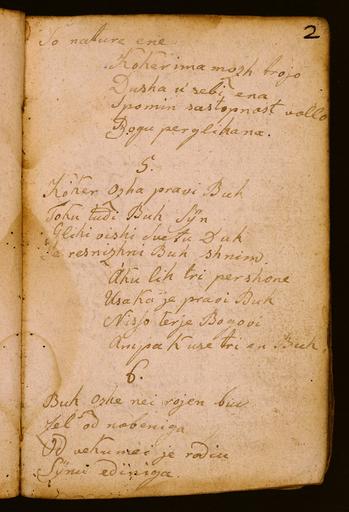 2
So nature ene
Koker ima mozh trojo
Dusha u sebi ena
Spomin sastopnost vollo
Bogu perglihana.
5.
Koker Ozha pravi Buh
Toku tudi Buh Sÿn
Glihi vishi Svetu Duh
Sa resnizhni Buh shnim.
Aku lih tri pershone
Usaka je pravi Buh
Niso terje Bogovi
Ampak use tri en Buh.
6.
Buh Ozhe nei rojen biu
Jel od nobeniga
Od vekumei je rodiu
Sÿnu ediniga.